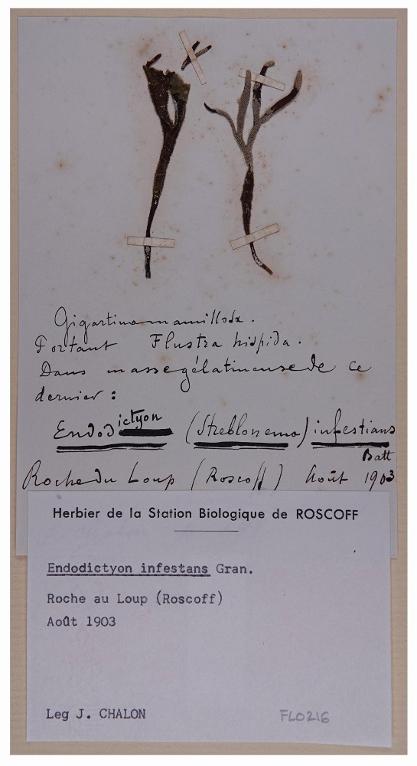 Gigartina mamillosa.
Portant Flustra hispida.
Dans masse gélatineuse de ce
dernier :
Endodictyon (Streblonema) infestians
Batt
Roche du Loup (Roscoff) Août 1903
Herbier de la Station Biologique de ROSCOFF
Endodictyon infestans Gran.
Roche au Loup (Roscoff)
Août 1903
Leg J. CHALON FL0216